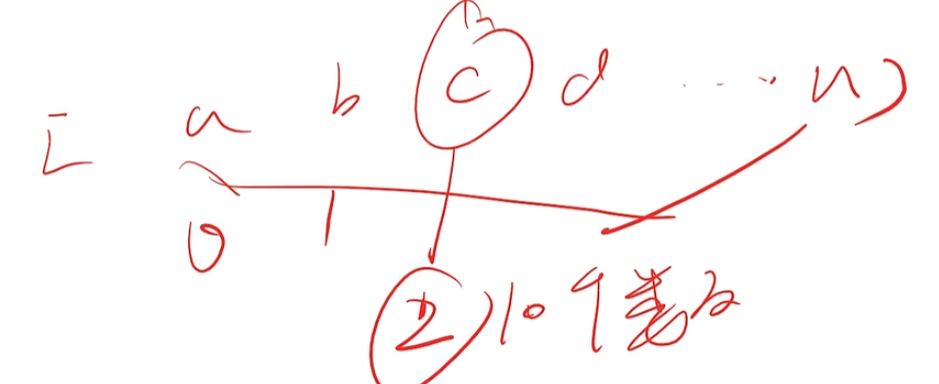 [ a b c d ...... n )
0 1 2 10个类及